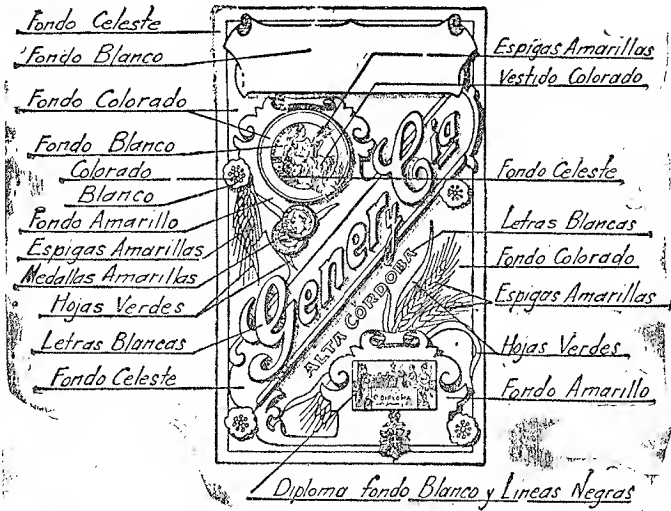 Fondo Celeste
Fondo Blanco
Fondo Colorado
Fondo Blanco
Colorado
Blanco
Fondo Amarillo
Espigas Amarillas
Medallas Amarillas
Hojas Verdes
Letras Blancas
Fondo Celeste
Genery Cia
ALTA CORDOBA
DIPLOMA
Espigas Amarillas
Vestido Colorado
Fondo Celeste
Letras Blancas
Fondo Colorado
Espigas Amarillas
Hojas Verdes
Fondo Amarillo
Diploma fondo Blanco y Lineas Negras